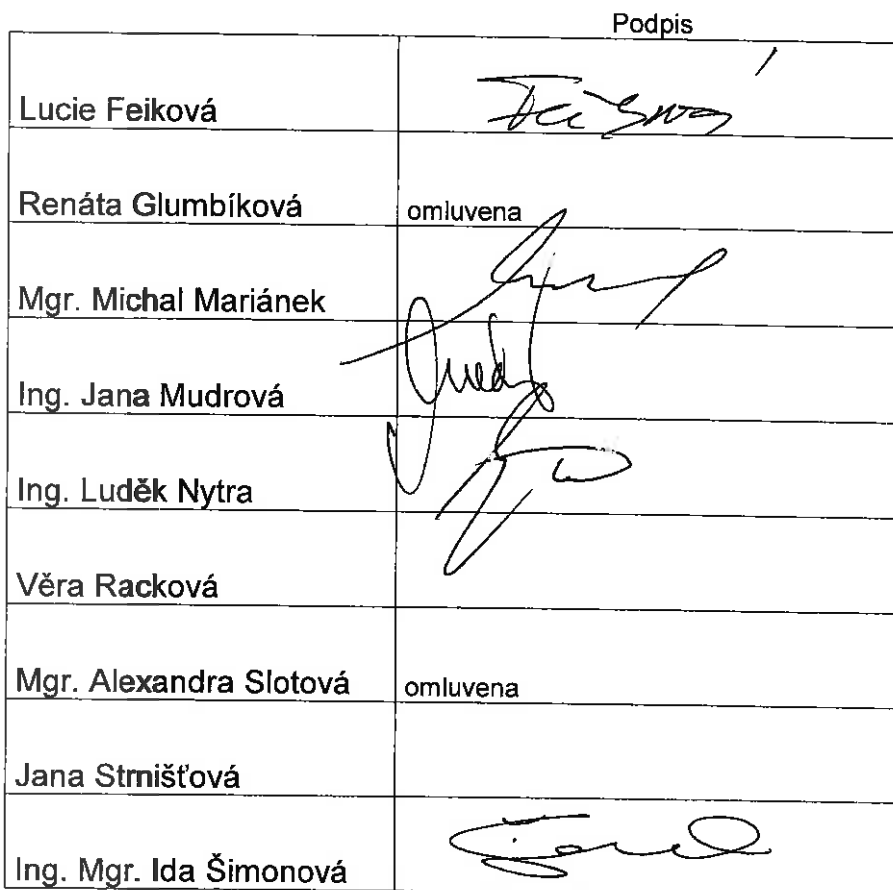 Podpis
Lucie Feiková
Renáta Glumbíková omluvena
Mgr. Michal Mariánek
Ing. Jana Mudrová
Ing. Luděk Nytra
Věra Racková
Mgr. Alexandra Slotová omluvena
Jana Strnišťová
Ing. Mgr. Ida Šimonová